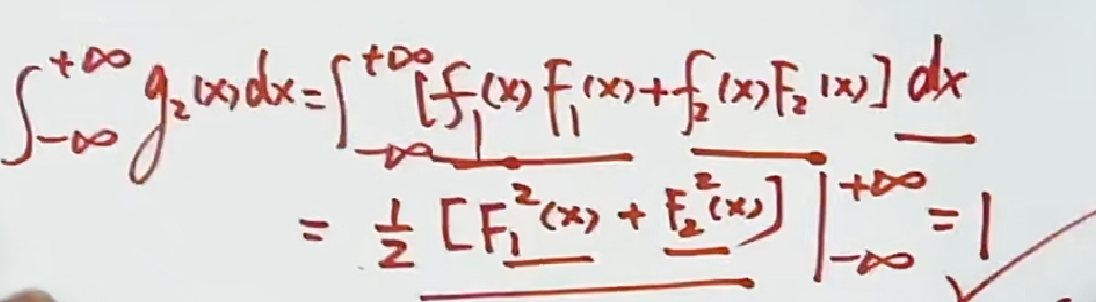 ∫_{-∞}^{+∞} g₂(x)dx = ∫_{-∞}^{+∞} [f₁(x)F₁(x) + f₂(x)F₂(x)] dx
= ½ [F₁²(x) + F₂²(x)] |_{-∞}^{+∞} = 1 ✓